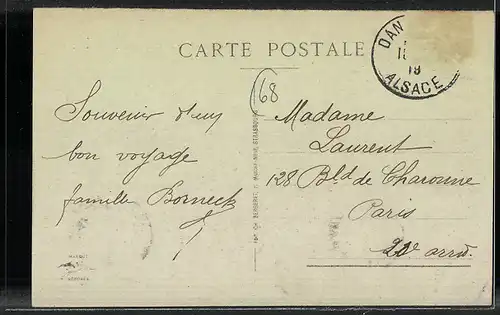 CARTE POSTALE
DAN
19
ALSACE
68
Souvenir d'un
bon voyage
famille Borneck
Madame
Laurent
128 Bld de Charonne
Paris
20e arrd.